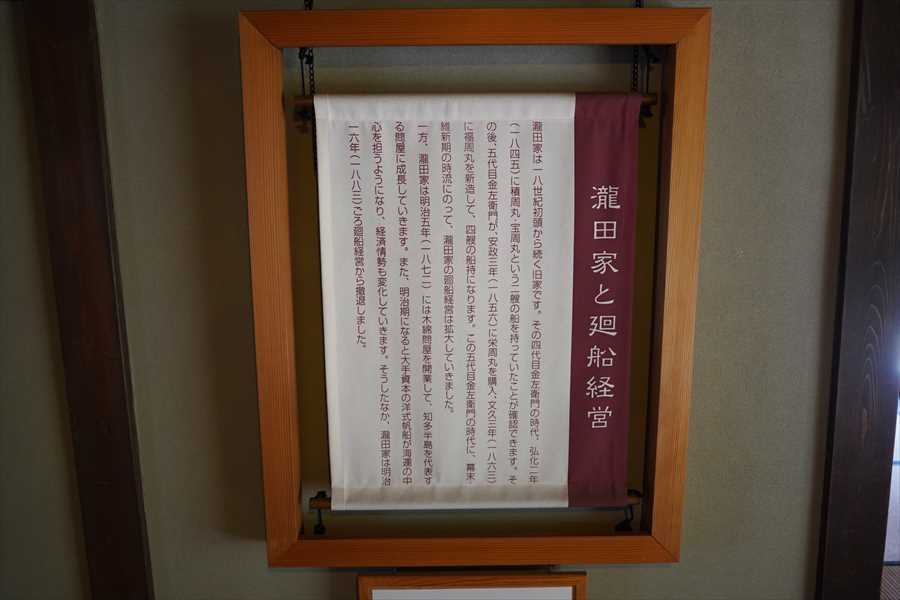 瀧田家と廻船経営
瀧田家は一八世紀初頭から続く旧家です。その四代目金左衛門の時代、弘化二年
(一八四五)に積周丸・宝周丸という二艘の船を持っていたことが確認できます。そ
の後、五代目金左衛門が、安政三年(一八五六)に栄周丸を購入、文久三年(一八六三)
に福周丸を新造して、四艘の船持になります。この五代目金左衛門の時代に、幕末・
維新期の時流にのって、瀧田家の廻船経営は拡大していきました。
一方、瀧田家は明治五年(一八七二)には木綿問屋を開業して、知多半島を代表す
る問屋に成長していきます。また、明治期になると大手資本の洋式帆船が海運の中
心を担うようになり、経済情勢も変化していきます。そうしたなか、瀧田家は明治
一六年(一八八三)ごろ廻船経営から撤退しました。